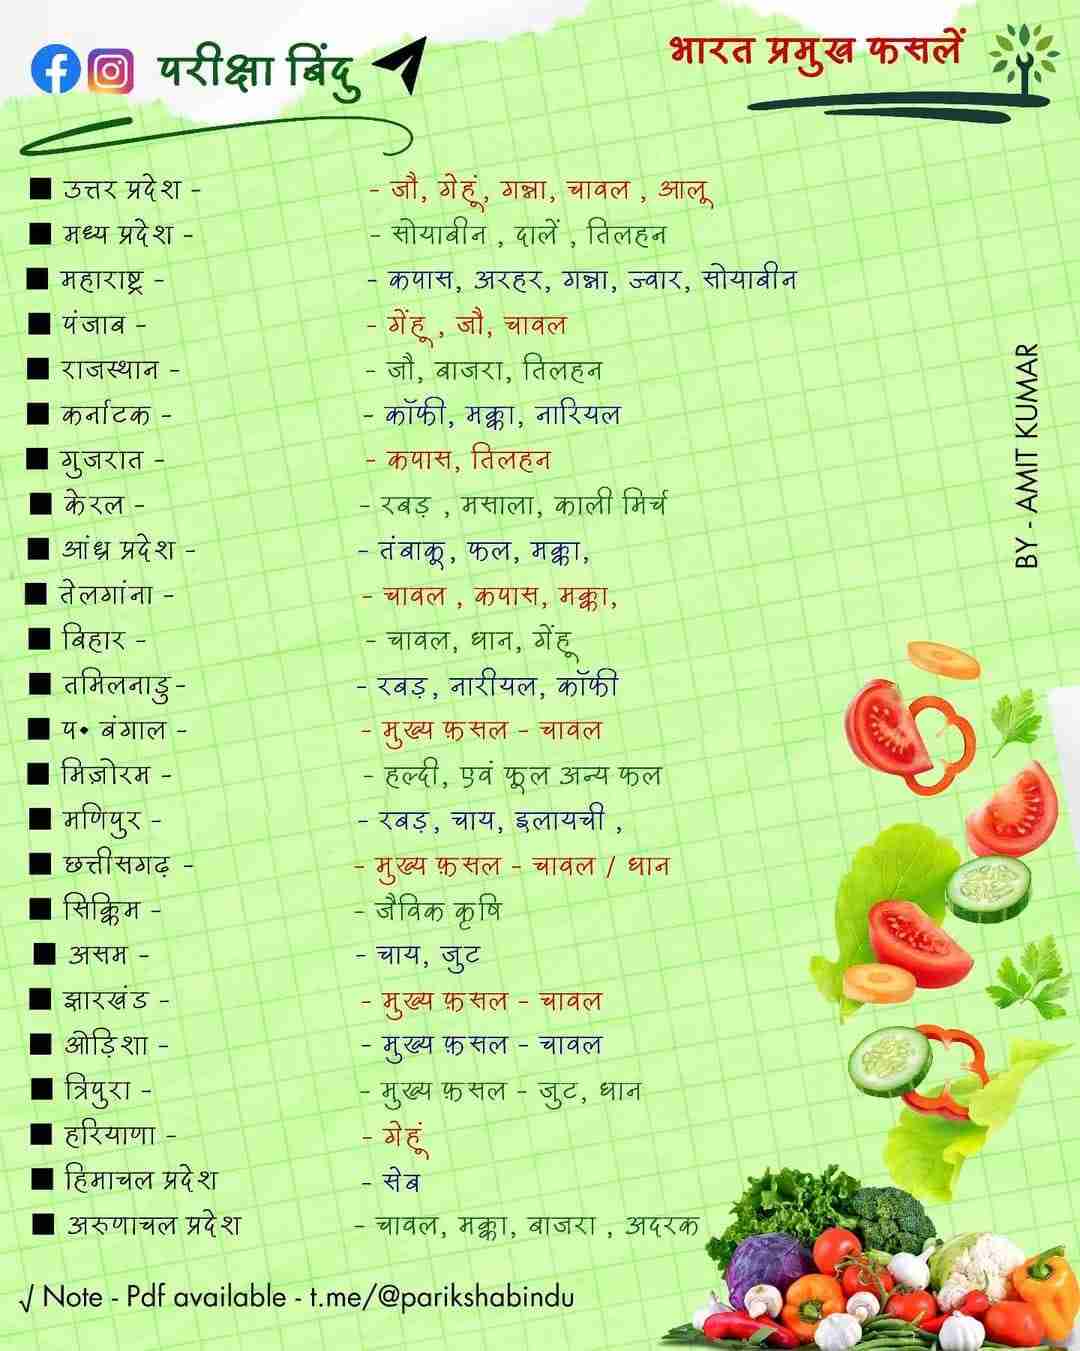 परीक्षा बिंदु
भारत प्रमुख फसलें
■ उत्तर प्रदेश - - जौ, गेहूं, गन्ना, चावल , आलू
■ मध्य प्रदेश - - सोयाबीन , दालें , तिलहन
■ महाराष्ट्र - - कपास, अरहर, गन्ना, ज्वार, सोयाबीन
■ पंजाब - - गेंहू , जौ, चावल
■ राजस्थान - - जौ, बाजरा, तिलहन
■ कर्नाटक - - कॉफी, मक्का, नारियल
■ गुजरात - - कपास, तिलहन
■ केरल - - रबड़ , मसाला, काली मिर्च
■ आंध्र प्रदेश - - तंबाकू, फल, मक्का,
■ तेलगांना - - चावल , कपास, मक्का,
■ बिहार - - चावल, धान, गेंहू
■ तमिलनाडु- - रबड़, नारीयल, कॉफी
■ प• बंगाल - - मुख्य फ़सल - चावल
■ मिज़ोरम - - हल्दी, एवं फूल अन्य फल
■ मणिपुर - - रबड़, चाय, इलायची ,
■ छत्तीसगढ़ - - मुख्य फ़सल - चावल / धान
■ सिक्किम - - जैविक कृषि
■ असम - - चाय, जुट
■ झारखंड - - मुख्य फ़सल - चावल
■ ओड़िशा - - मुख्य फ़सल - चावल
■ त्रिपुरा - - मुख्य फ़सल - जुट, धान
■ हरियाणा - - गेहूं
■ हिमाचल प्रदेश - सेब
■ अरुणाचल प्रदेश - चावल, मक्का, बाजरा , अदरक
BY - AMIT KUMAR
√ Note - Pdf available - t.me/@parikshabindu